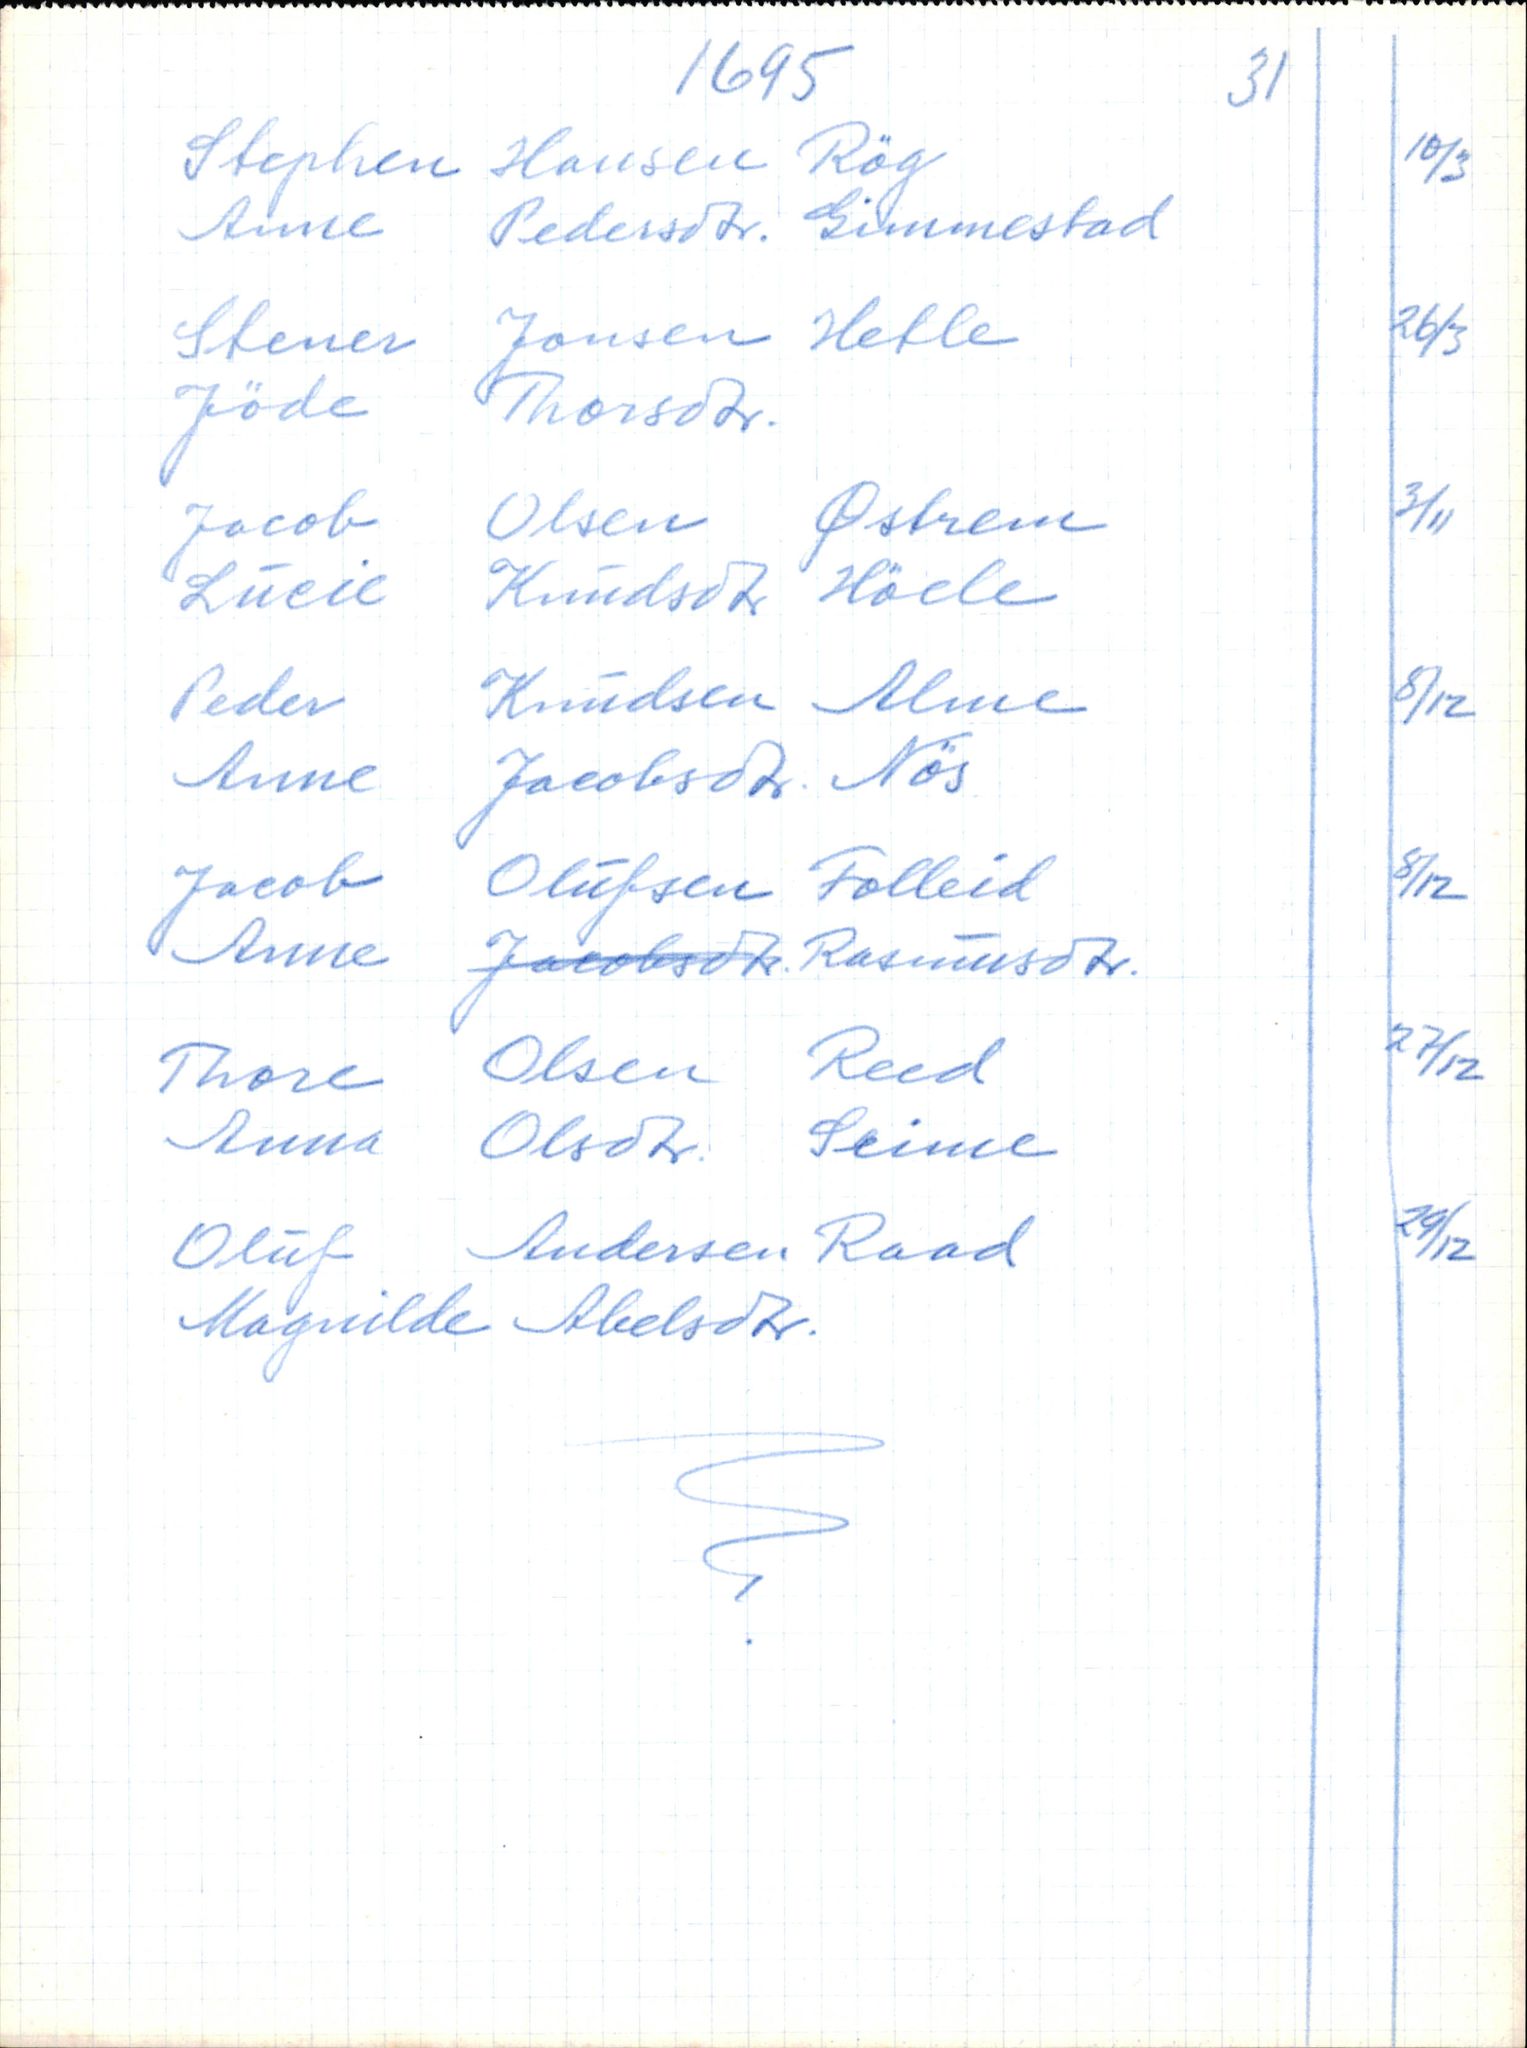 1695 31
Stephen Hansen Rög 10/3
Anne Pedersdtr. Gimmestad
Stener Jonsen Hetle 26/3
Jöde Thorsdtr.
Jacob Olsen Østrem 3/11
Lucie Knudsdtr Höele
Peder Knudsen Alme 8/12
Anne Jacobsdtr. Nös
Jacob Olufsen Folleid 8/12
Anne Jacobsdtr. Rasmusdtr.
Thore Olsen Reed 27/12
Anna Olsdtr. Seime
Oluf Andersen Raad 29/12
Magnilde Abelsdtr.